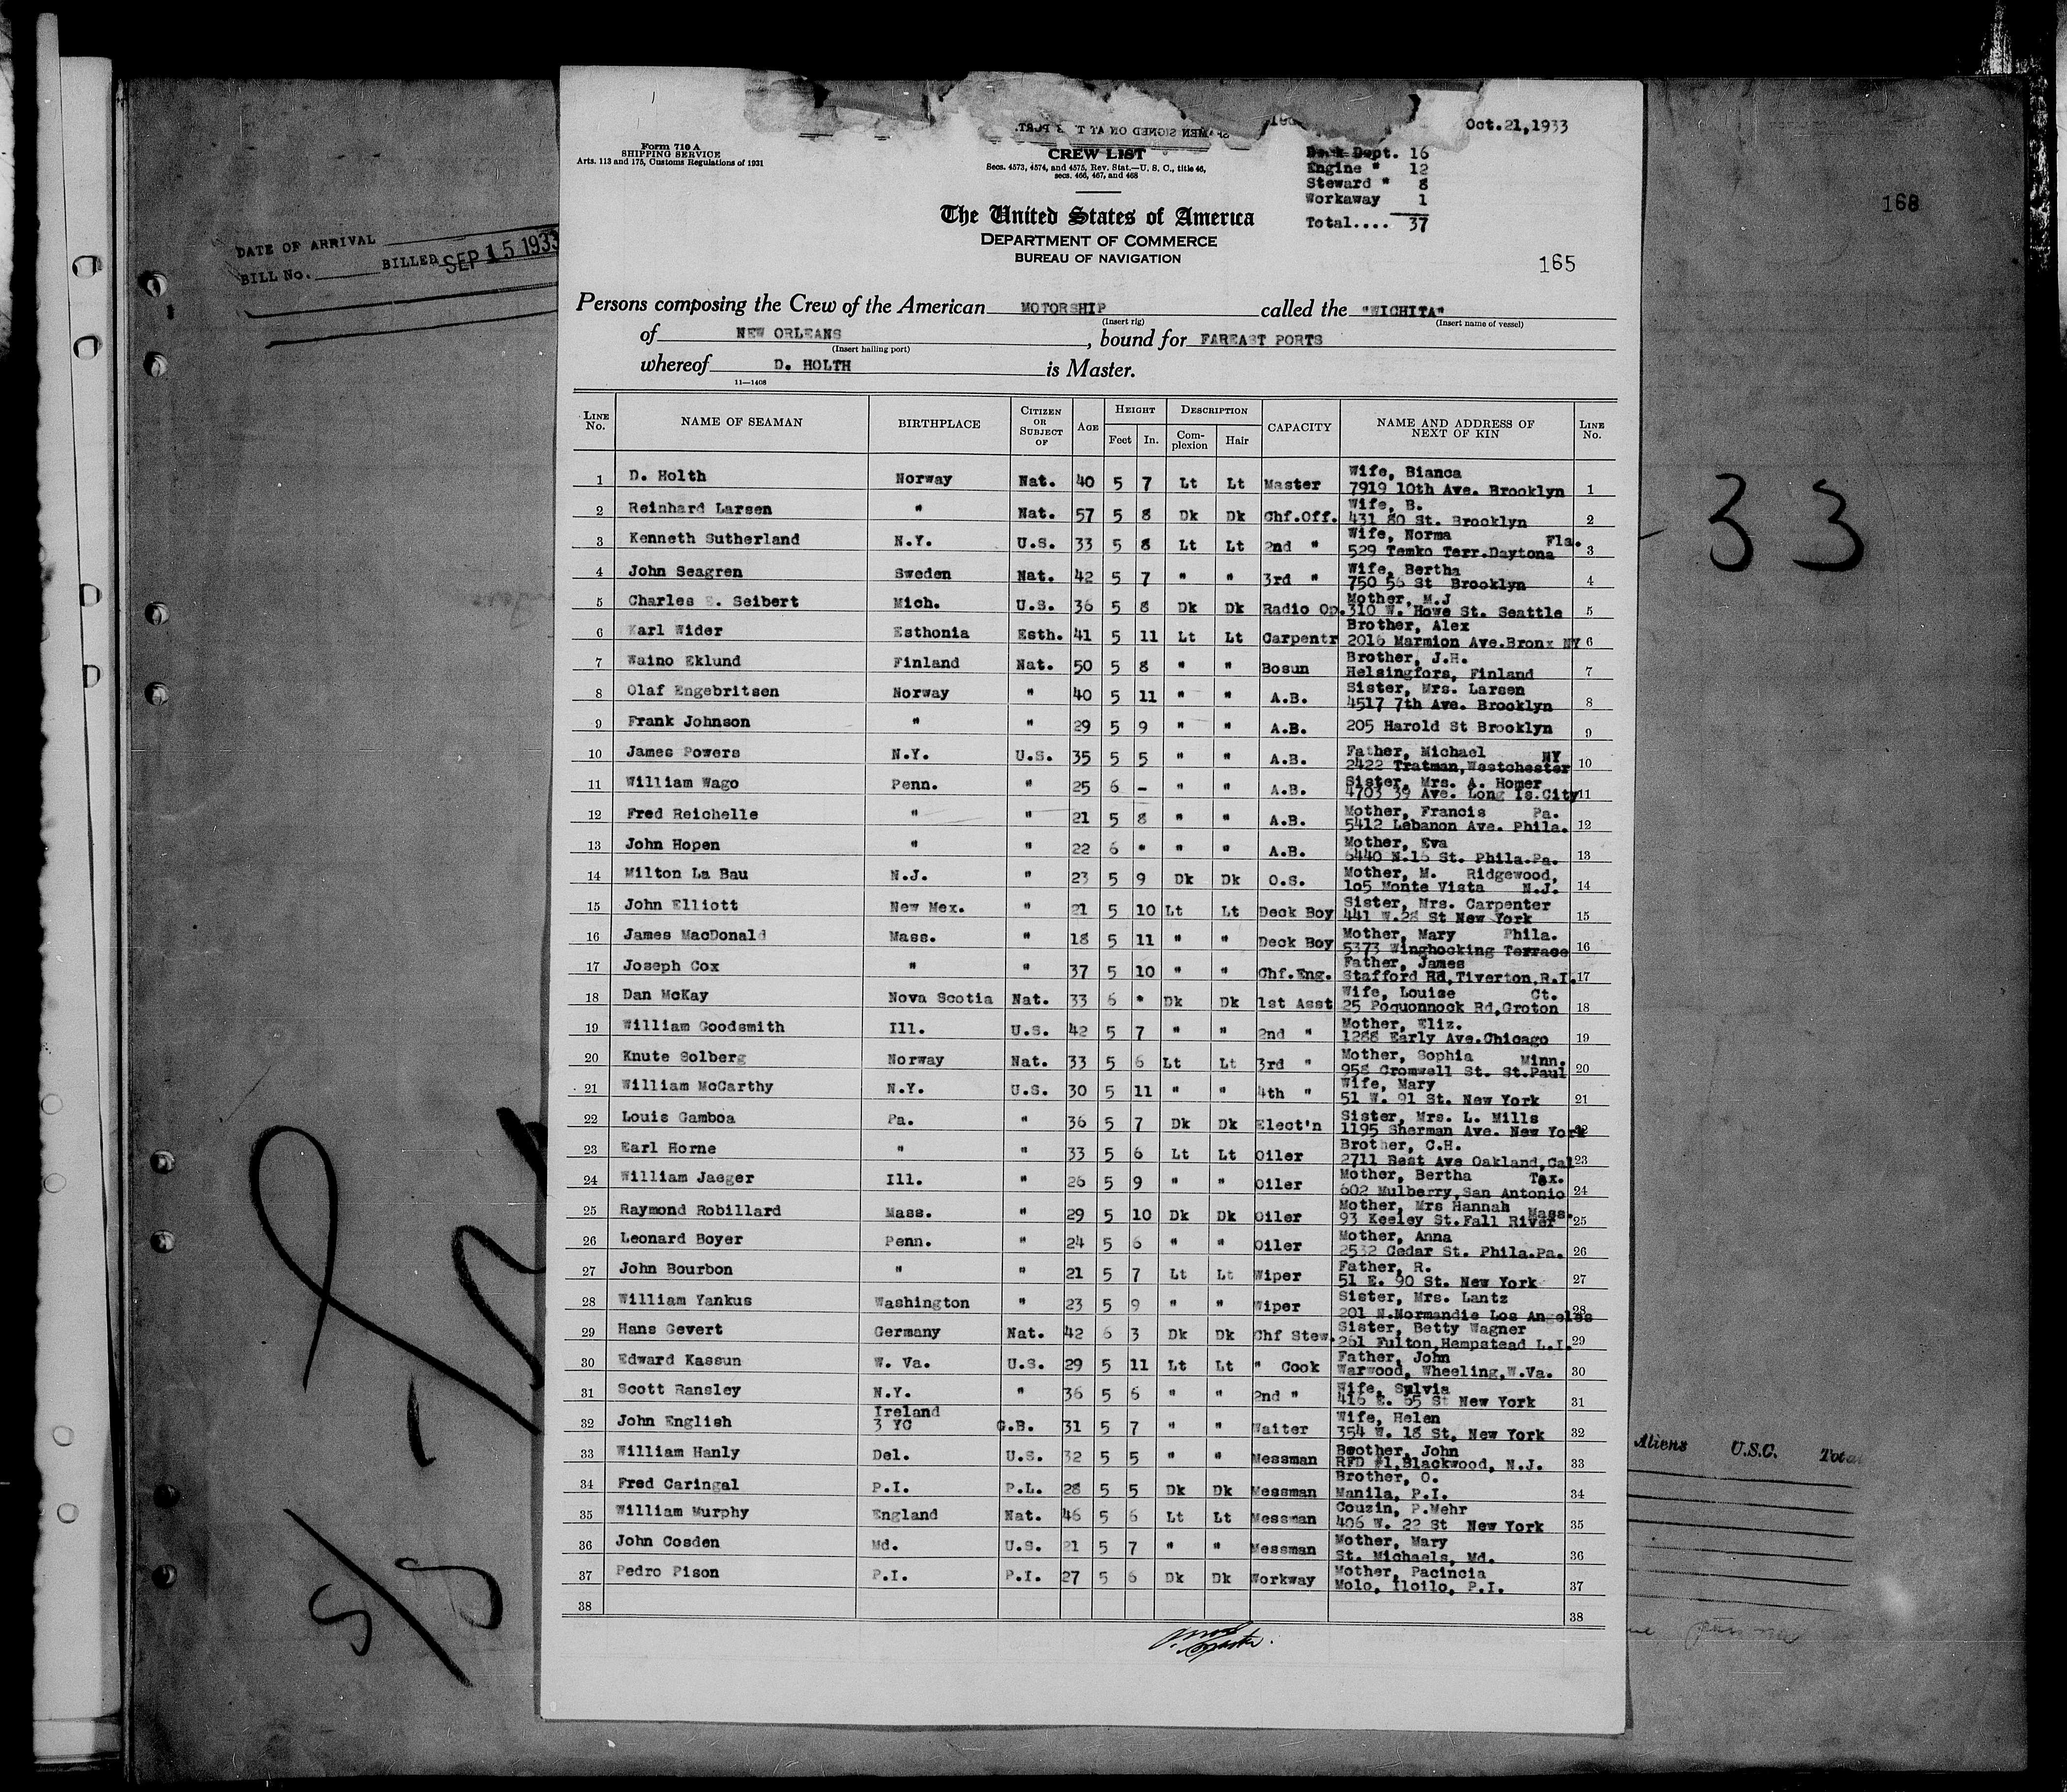 Oct.21,1933
Form 710 A
SHIPPING SERVICE
Arts. 113 and 175, Customs Regulations of 1931
CREW LIST
Secs. 4573, 4574, and 4575, Rev. Stat.—U. S. C., title 46,
secs. 466, 467, and 468
Deck Dept. 16
Engine " 12
Steward " 8
Workaway 1
Total.... 37
168
The United States of America
DEPARTMENT OF COMMERCE
BUREAU OF NAVIGATION
165
DATE OF ARRIVAL
BILL No. BILLED SEP 15 1933
Persons composing the Crew of the American MOTORSHIP called the "WICHITA"
(Insert rig) (Insert name of vessel)
of NEW ORLEANS, bound for FAREAST PORTS
(Insert hailing port)
whereof D. HOLTH is Master.
11—1408
LINE No. NAME OF SEAMAN BIRTHPLACE CITIZEN OR SUBJECT OF AGE HEIGHT Feet In. DESCRIPTION Complexion Hair CAPACITY NAME AND ADDRESS OF NEXT OF KIN LINE No.
1 D. Holth Norway Nat. 40 5 7 Lt Lt Master Wife, Bianca 7919 10th Ave. Brooklyn 1
2 Reinhard Larsen " Nat. 57 5 8 Dk Dk Chf.Off. Wife, B. 431 80 St. Brooklyn 2
3 Kenneth Sutherland N.Y. U.S. 33 5 8 Lt Lt 2nd " Wife, Norma Fla. 529 Temko Terr.Daytona 3
4 John Seagren Sweden Nat. 42 5 7 " " 3rd " Wife, Bertha 750 56 St Brooklyn 4
5 Charles . Seibert Mich. U.S. 36 5 8 Dk Dk Radio Op. Mother, M.J 310 W. Howe St. Seattle 5
6 Karl Wider Esthonia Esth. 41 5 11 Lt Lt Carpentr Brother, Alex 2016 Marmion Ave.Bronx NY 6
7 Waino Eklund Finland Nat. 50 5 8 " " Bosun Brother, J.H. Helsingfors, Finland 7
8 Olaf Engebritsen Norway " 40 5 11 " " A.B. Sister, Mrs. Larsen 4517 7th Ave. Brooklyn 8
9 Frank Johnson " " 29 5 9 " " A.B. 205 Harold St Brooklyn 9
10 James Powers N.Y. U.S. 35 5 5 " " A.B. Father, Michael NY 2422 Tratman,Westchester 10
11 William Wago Penn. " 25 6 - " " A.B. Sister, Mrs. A. Homer 4703 39 Ave. Long Is.City 11
12 Fred Reichelle " " 21 5 8 " " A.B. Mother, Francis Pa. 5412 Lebanon Ave. Phila. 12
13 John Hopen " " 22 6 " " " A.B. Mother, Eva 6440 N.16 St. Phila.Pa. 13
14 Milton La Bau N.J. " 23 5 9 Dk Dk O.S. Mother, M. Ridgewood, 105 Monte Vista N.J. 14
15 John Elliott New Mex. " 21 5 10 Lt Lt Deck Boy Sister, Mrs. Carpenter 441 W.28 St New York 15
16 James MacDonald Mass. " 18 5 11 " " Deck Boy Mother, Mary Phila. 5373 Winghocking Terrace 16
17 Joseph Cox " " 37 5 10 " " Chf.Eng. Father, James Stafford Rd,Tiverton,R.I. 17
18 Dan McKay Nova Scotia Nat. 33 6 " Dk Dk 1st Asst Wife, Louise Ct. 25 Poquonnock Rd,Groton 18
19 William Goodsmith Ill. U.S. 42 5 7 " " 2nd " Mother, Eliz. 1288 Early Ave.Chicago 19
20 Knute Solberg Norway Nat. 33 5 6 Lt Lt 3rd " Mother, Sophia Minn. 958 Cromwell St. St.Paul 20
21 William McCarthy N.Y. U.S. 30 5 11 " " 4th " Wife, Mary 51 W. 91 St. New York 21
22 Louis Gamboa Pa. " 36 5 7 Dk Dk Elect'n Sister, Mrs. L. Mills 1195 Sherman Ave. New York 22
23 Earl Horne " " 33 5 6 Lt Lt Oiler Brother, C.H. 2711 Best Ave Oakland,Cal 23
24 William Jaeger Ill. " 26 5 9 " " Oiler Mother, Bertha Tex. 602 Mulberry,San Antonio 24
25 Raymond Robillard Mass. " 29 5 10 Dk Dk Oiler Mother, Mrs Hannah Mass. 93 Keeley St.Fall River 25
26 Leonard Boyer Penn. " 24 5 6 " " Oiler Mother, Anna 2532 Cedar St. Phila.Pa. 26
27 John Bourbon " " 21 5 7 Lt Lt Wiper Father, R. 51 E. 90 St. New York 27
28 William Yankus Washington " 23 5 9 " " Wiper Sister, Mrs. Lantz 201 N.Normandie Los Angeles 28
29 Hans Gevert Germany Nat. 42 6 3 Dk Dk Chf Stew. Sister, Betty Wagner 261 Fulton,Hempstead L.I. 29
30 Edward Kassun W. Va. U.S. 29 5 11 Lt Lt " Cook Father, John Warwood, Wheeling,W.Va. 30
31 Scott Ransley N.Y. " 36 5 6 " " 2nd " Wife, Sylvia 416 E. 65 St New York 31
32 John English Ireland 3 YC G.B. 31 5 7 " " Waiter Wife, Helen 354 W. 18 St, New York 32
33 William Hanly Del. U.S. 32 5 5 " " Messman Brother, John RFD #1,Blackwood, N.J. 33
34 Fred Caringal P.I. P.L. 28 5 5 Dk Dk Messman Brother, O. Manila, P.I. 34
35 William Murphy England Nat. 46 5 6 Lt Lt Messman Couzin, P.Mehr 406 W. 22 St New York 35
36 John Cosden Md. U.S. 21 5 7 " " Messman Mother, Mary St. Michaels, Md. 36
37 Pedro Pison P.I. P.I. 27 5 6 Dk Dk Workway Mother, Pacincia Molo, Iloilo, P.I. 37
38 38
33
Aliens U.S.C. Total